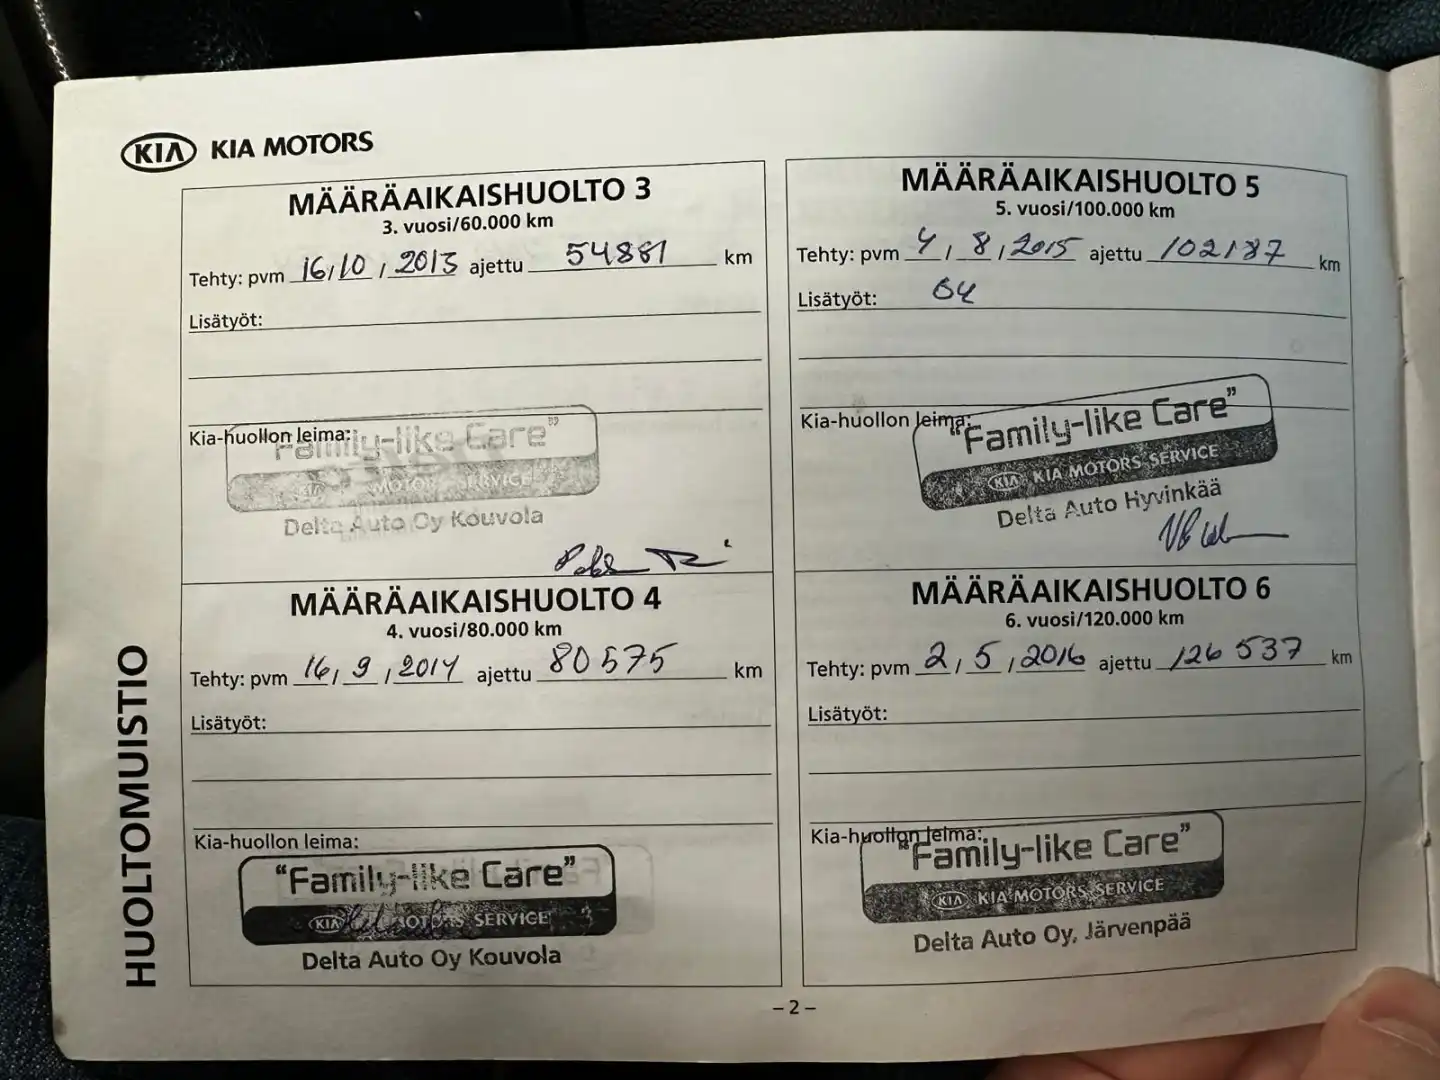 KIA KIA MOTORS
MÄÄRÄAIKAISHUOLTO 3
3. vuosi/60.000 km
Tehty: pvm 16/10/2013 ajettu 54881 km
Lisätyöt:
Kia-huollon leima:
"Family-like Care"
KIA MOTORS SERVICE
Delta Auto Oy Kouvola
MÄÄRÄAIKAISHUOLTO 4
4. vuosi/80.000 km
Tehty: pvm 16/9/2014 ajettu 80575 km
Lisätyöt:
Kia-huollon leima:
"Family-like Care"
KIA MOTORS SERVICE
Delta Auto Oy Kouvola
MÄÄRÄAIKAISHUOLTO 5
5. vuosi/100.000 km
Tehty: pvm 4/8/2015 ajettu 102187 km
Lisätyöt:
Kia-huollon leima:
"Family-like Care"
KIA KIA MOTORS SERVICE
Delta Auto Hyvinkää
MÄÄRÄAIKAISHUOLTO 6
6. vuosi/120.000 km
Tehty: pvm 2/5/2016 ajettu 126 537 km
Lisätyöt:
Kia-huollon leima:
"Family-like Care"
KIA KIA MOTORS SERVICE
Delta Auto Oy, Järvenpää
HUOLTOMUISTIO
– 2 –